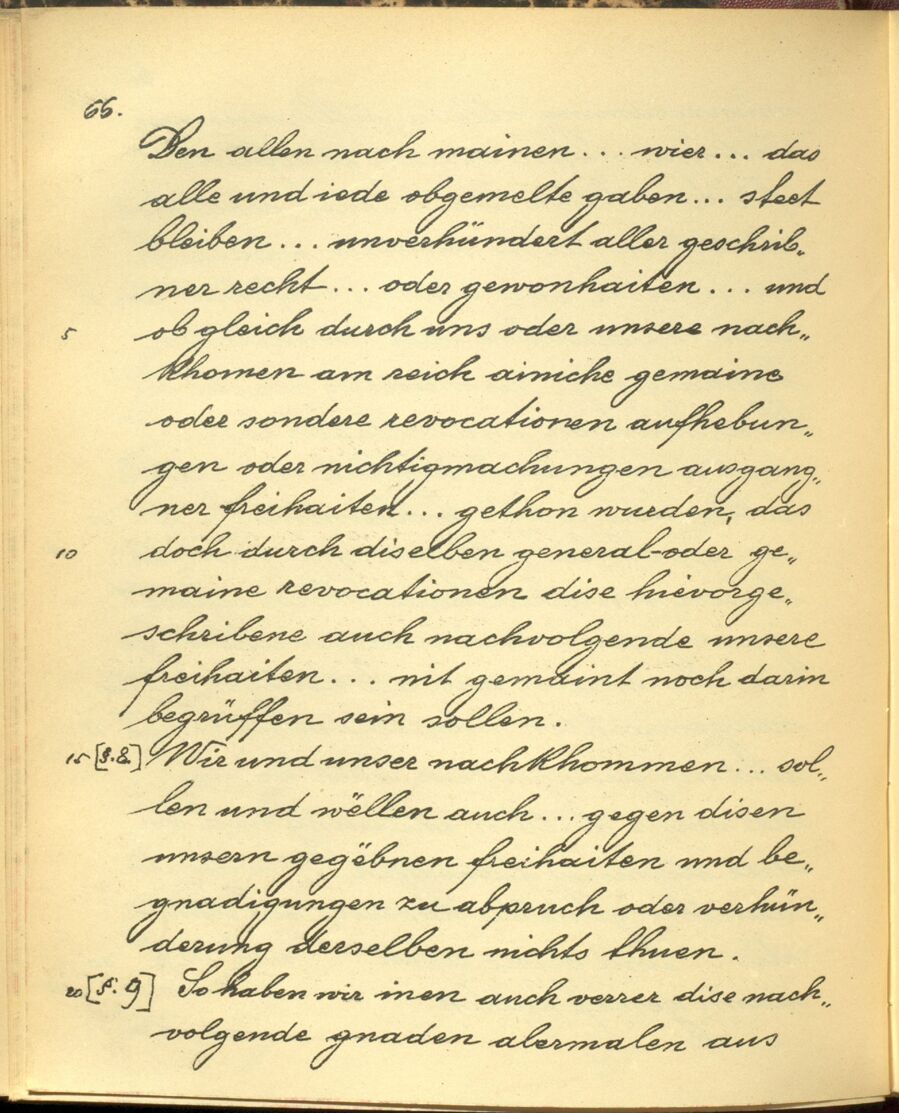 66.
Den allen nach mainen... wier... das
alle und iede obgemelte gaben... steet
bleiben... unverhündert aller geschrib„
ner recht... oder gewonhaiten... und
5 ob gleich durch uns oder unsere nach„
khomen am reich ainiche gemaine
oder sondere revocationen aufhebun„
gen oder nichtigmachungen ausgang„
ner freihaiten... gethon wurden, das
10 doch durch diselben general-oder ge„
maine revocationen dise hievorge„
schribene auch nachvolgende unsere
freihaiten... nit gemaint noch darin
begrüffen sein sollen.
15 [§.8] Wir und unser nachkhommen... sol„
len und wëllen auch... gegen disen
unsern gegëbnen freihaiten und be„
gnadigungen zu abpruch oder verhün„
derung derselben nichts thuen.
20 [§.9] So haben wir inen auch verrer dise nach„
volgende gnaden abermalen aus